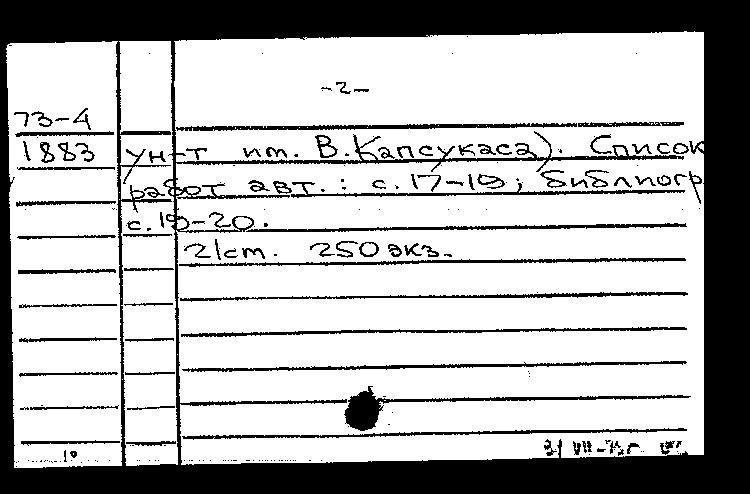 -2-
73-4
1883 ун-т им. В. Капсукаса). Список
работ авт.: с. 17-19; библиогр
с. 19-20.
21 cm. 250 экз.
10